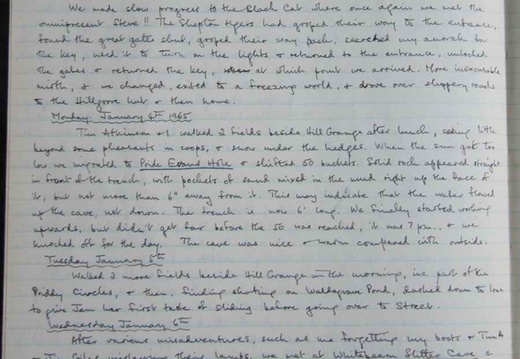 We made slow progress to the Black Cat where once again we met the
omnipresent Steve!! The Shepton tigers had groped their way to the entrance,
found the great gates shut, groped their way back, searched my anorak for
the key, used it to turn on the lights & returned to the entrance, unlocked
the gates & returned the key, at which point we arrived. More inexorable
mirth, & we changed, exited to a freezing world, & drove over slippery roads
to the Hillgrove hut & then home.
Monday January 4th 1965
Tim Atkinson & I walked 2 fields beside Hill Grange after lunch, seeing little
beyond some pheasants in coops, & snow under the hedges. When the sun got too
low we migrated to Pride Evans Hole & shifted 50 buckets. Solid rock appeared straight
in front of the trench, with pockets of sand mixed in the mud right up the face of
it, but not more than 6" away from it. This may indicate that the water flowed
up the cave, not down. The trench is now 6' long. We finally started working
upwards, but didn't get far before the 50 was reached, it was 7 pm., & we
knocked off for the day. The cave was nice & warm compared with outside.
Tuesday January 5th
Walked 3 more fields beside Hill Grange in the morning, inc. part of the
Priddy Circles, & then, finding skating on Waldegrave Pond, dashed down to love
to give Jan her first taste of sliding before going over to Street.
Wednesday January 6th
After various misadventures, such as me forgetting my boots & Tim &
their lamps, we met at Whitebeam Slitter Cave, &